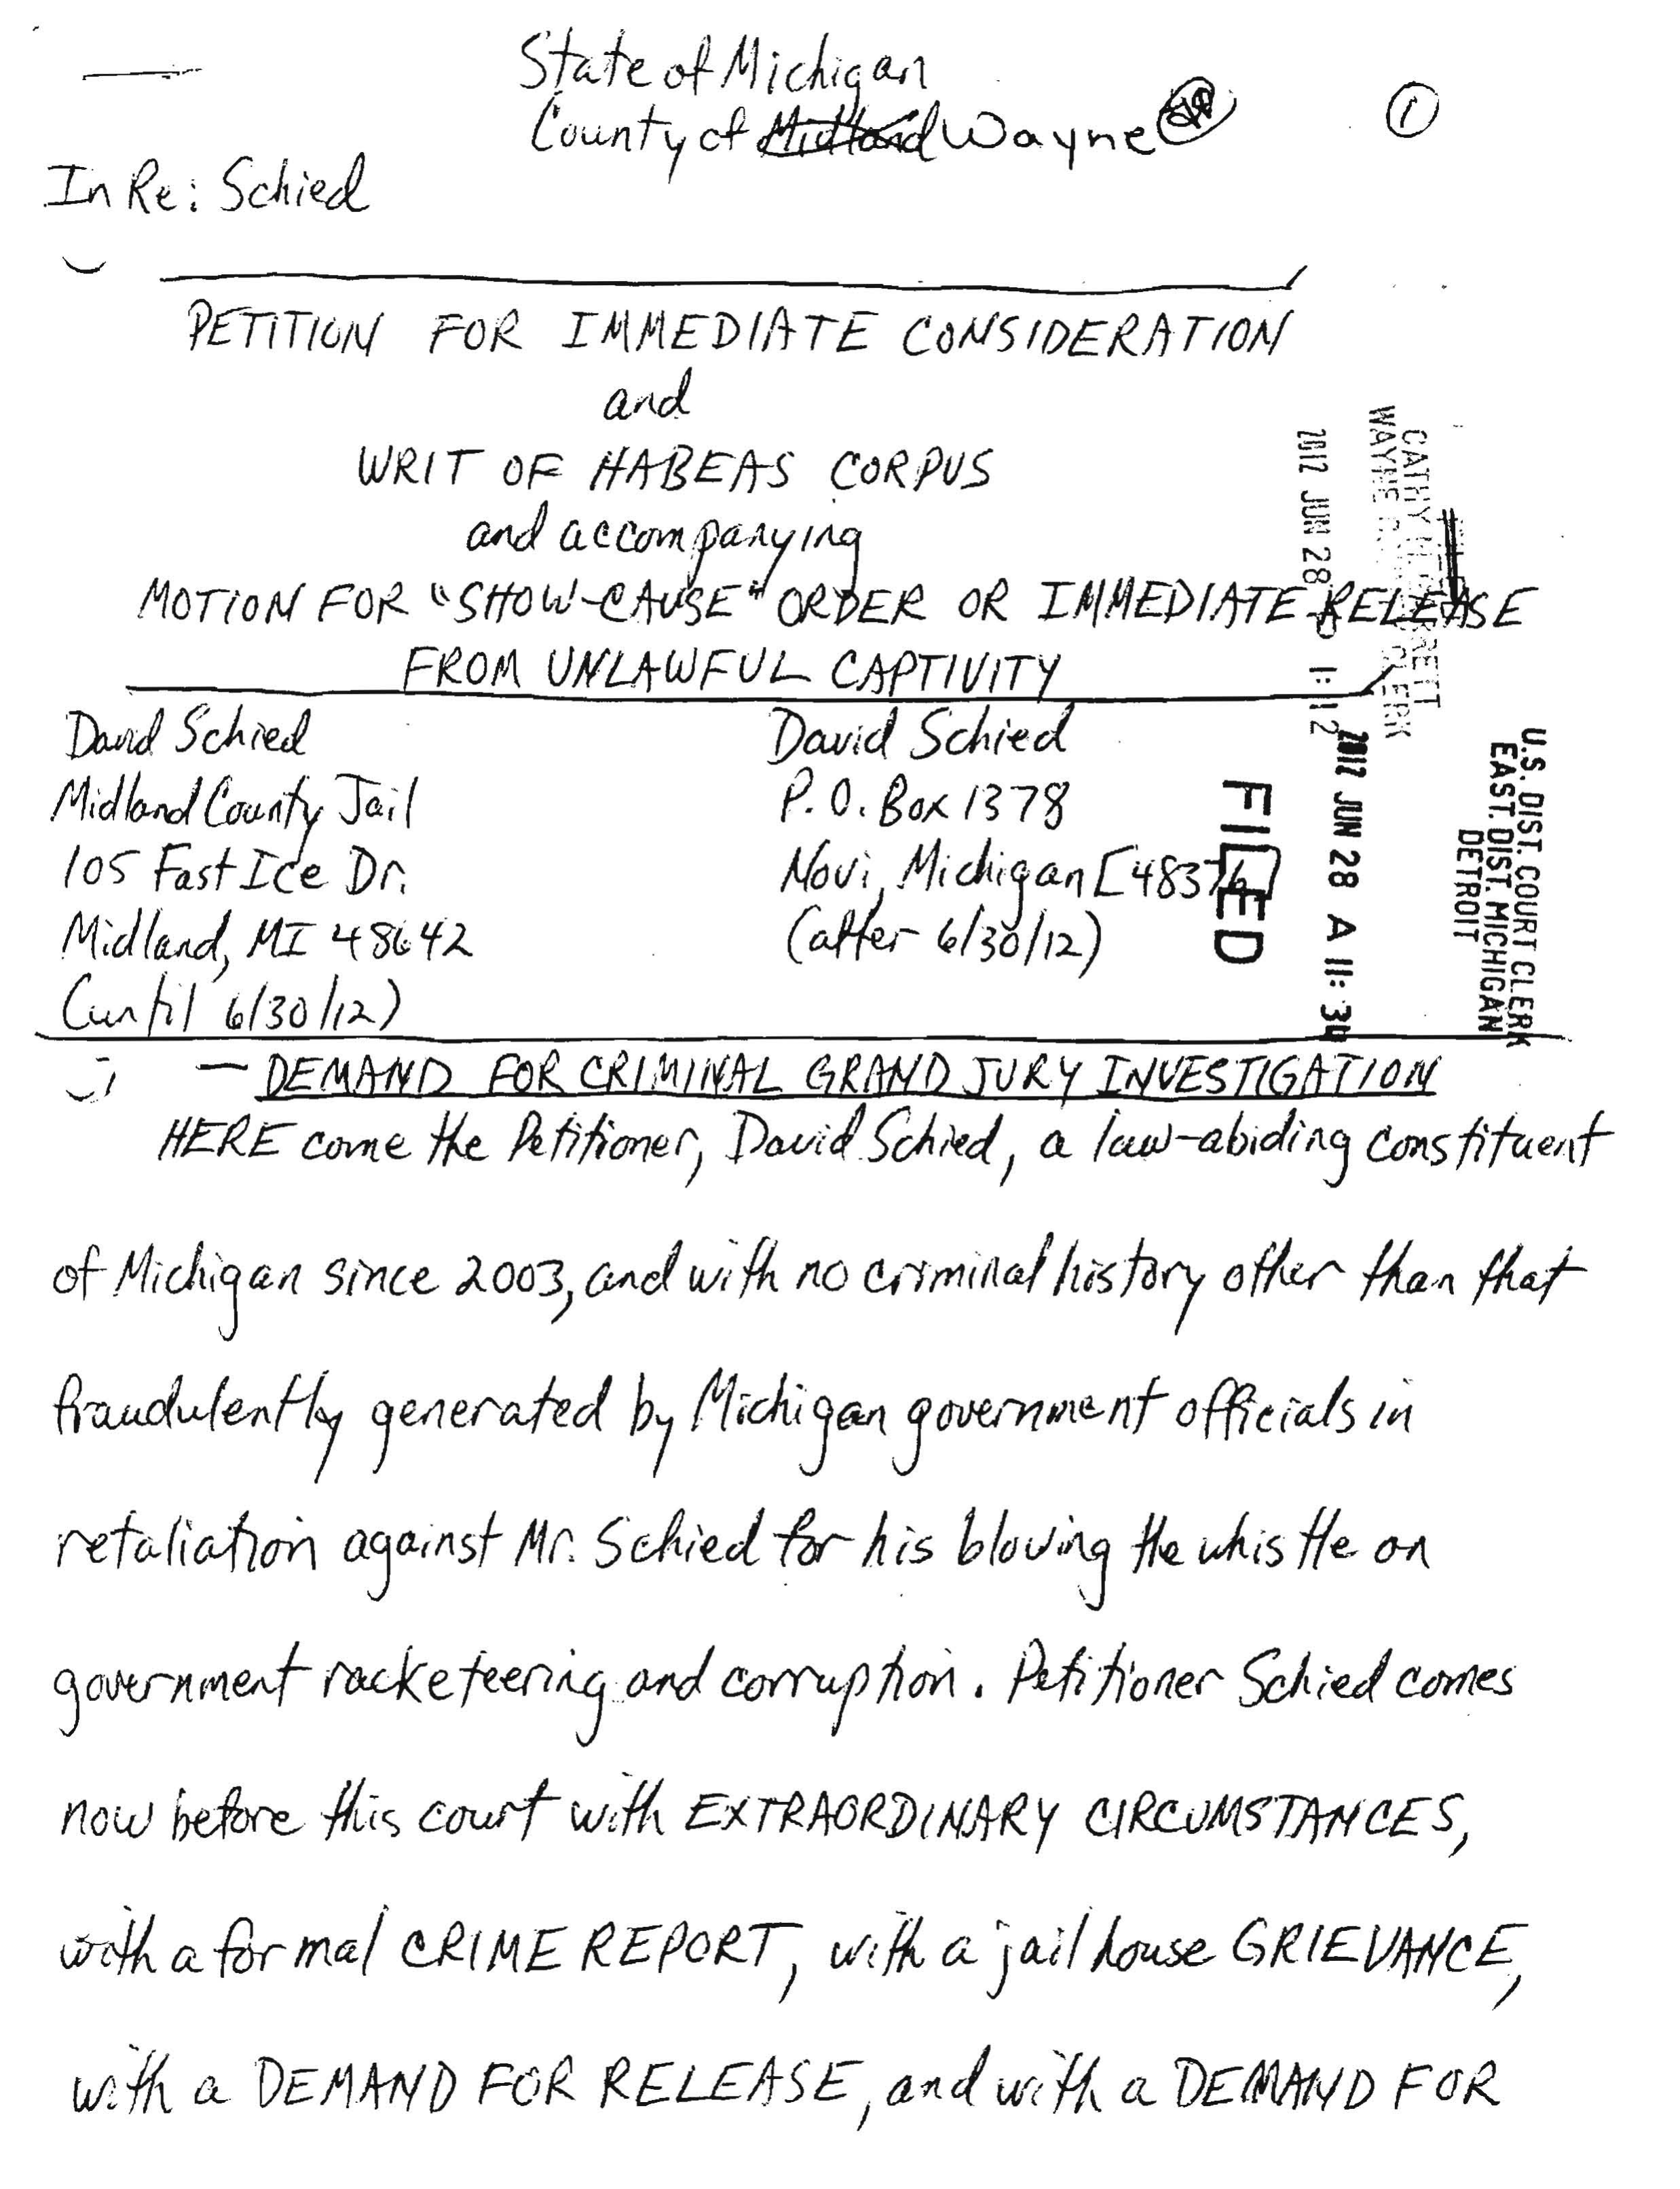 State of Michigan
County of Midland Wayne
1
In Re: Schied
PETITION FOR IMMEDIATE CONSIDERATION
and
WRIT OF HABEAS CORPUS
and accompanying
MOTION FOR "SHOW-CAUSE" ORDER OR IMMEDIATE RELEASE
FROM UNLAWFUL CAPTIVITY
CATHY
WAYNE CLERK
2012 JUN 28 1:12
David Schied
Midland County Jail
105 Fast Ice Dr.
Midland, MI 48642
(until 6/30/12)
David Schied
P.O. Box 1378
Novi, Michigan [48376]
(after 6/30/12)
FILED
2012 JUN 28 A 11:34
U.S. DIST. COURT CLERK
EAST. DIST. MICHIGAN
DETROIT
— DEMAND FOR CRIMINAL GRAND JURY INVESTIGATION
HERE come the Petitioner, David Schied, a law-abiding constituent
of Michigan since 2003, and with no criminal history other than that
fraudulently generated by Michigan government officials in
retaliation against Mr. Schied for his blowing the whistle on
government racketeering and corruption. Petitioner Schied comes
now before this court with EXTRAORDINARY CIRCUMSTANCES,
with a formal CRIME REPORT, with a jailhouse GRIEVANCE,
with a DEMAND FOR RELEASE, and with a DEMAND FOR